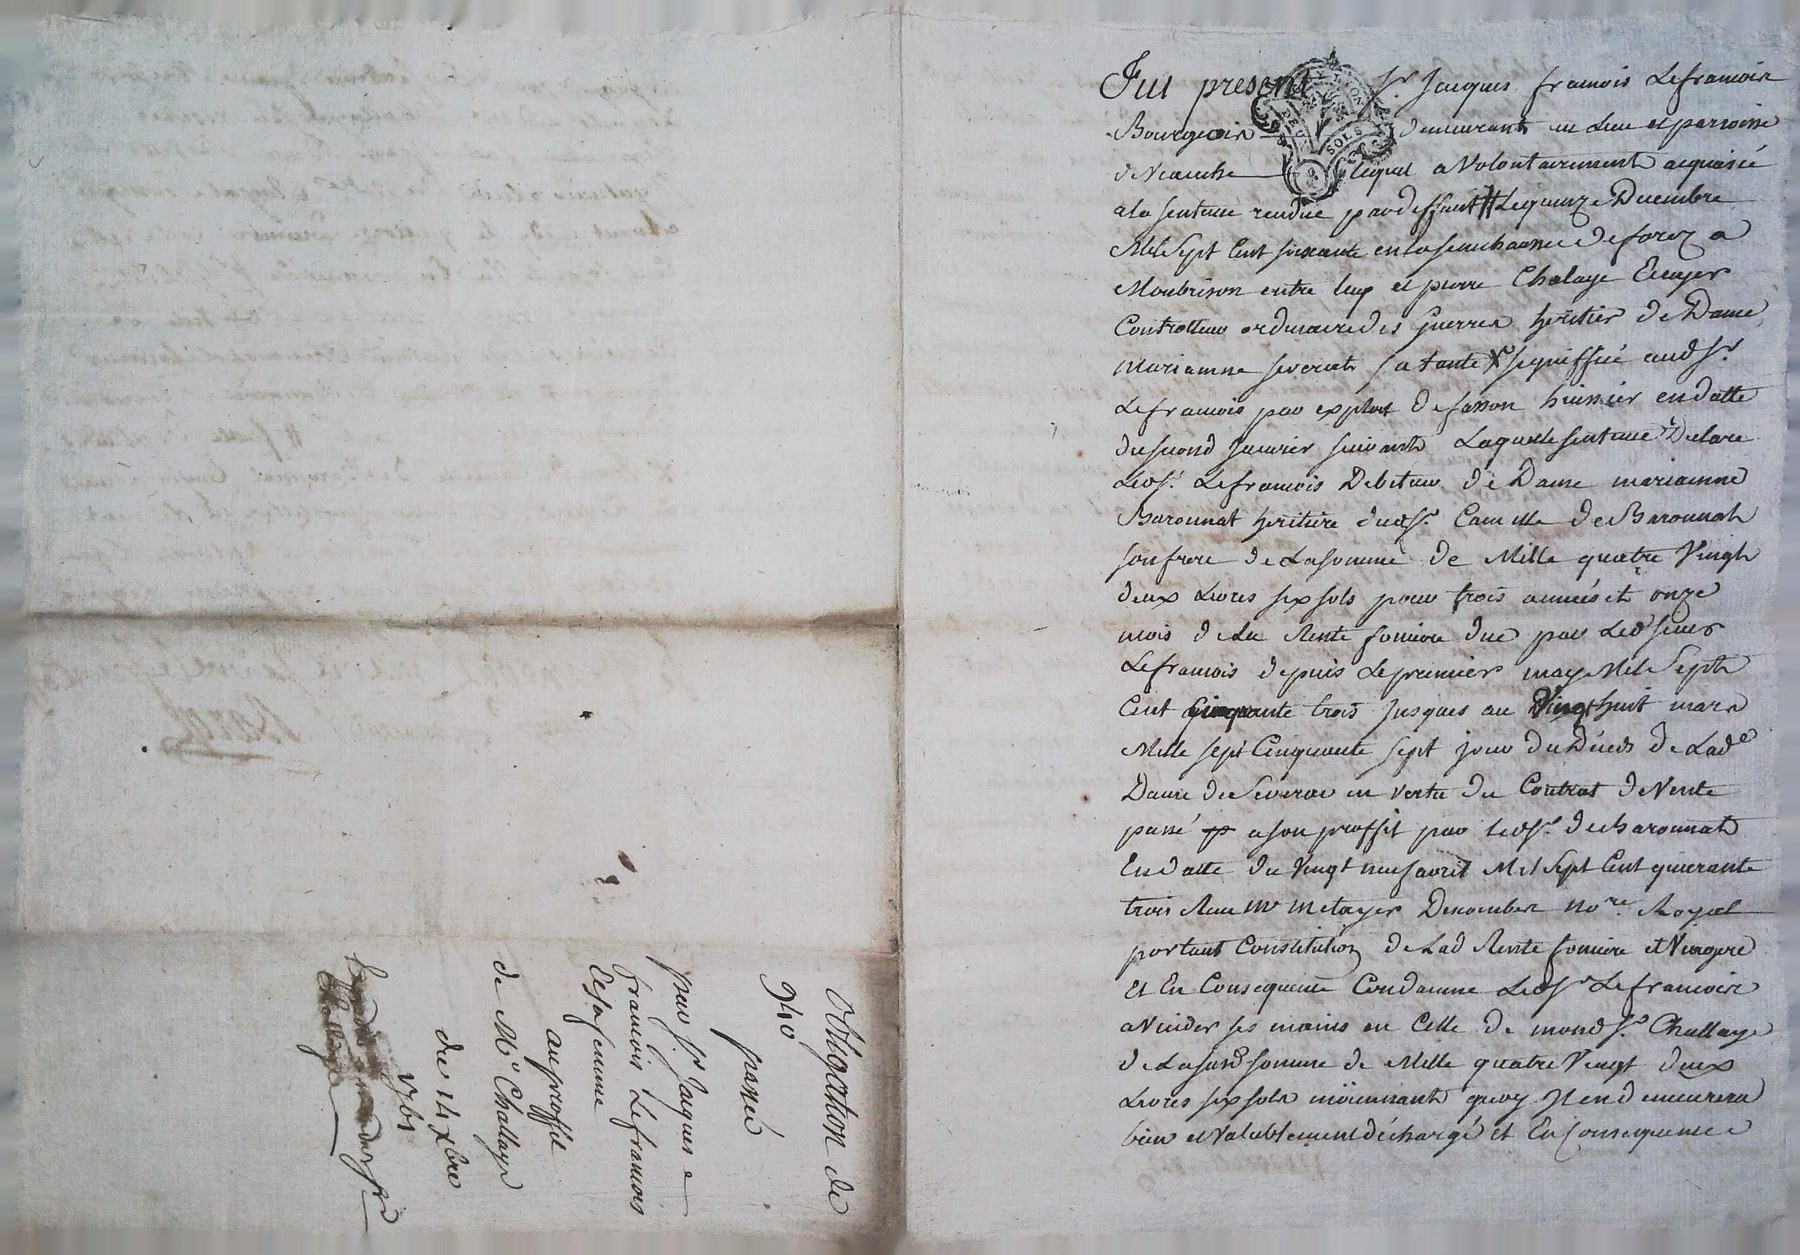 Fut present Sr. Jacques francois Lefrancois
Bourgeois demeurant en Lieu et parroisse
de lequel a Volontairement acquiescé
a la sentence rendue par deffaut # Le quinze Decembre
Mil Sept Cent soixante en la senechaussee de forez a
Monbrison entre luy et pierre Chalaye Ecuyer
Controlleur ordinaire des Guerres heritier de Dame
marianne severat sa tante X signiffiée audSr
Lefrancois par exploit de fasson huissier en datte
du second Janvier suivant Laquelle sentence Declare
LedSr. Lefrancois Debiteur de Dame marianne
Baronnat heritiere dudSr. Camille De Baronnat
son frere de La somme de Mille quatre Vingt
deux Livres six sols pour trois années et onze
mois de La Rente fonciere due par Led sieur
Lefrancois depuis Le premier may Mil Sept
Cent Cinquante trois Jusques au Vingt huit mars
Mille sept Cinquante sept jour du Décés de Lade
Dame de Severac en vertu du Contrat de Vente
passé a son proffit par ledSr. de Baronnat
En datte du Vingt neuf avril Mil Sept Cent quarante
trois Me metayer Denomber nore. Royal
portant Constitution de Lad Rente fonciere et Viagere
et En Consequence Condamne LedSr Lefrancois
a Vuider ses mains en Celle de mondSr. Challaye
de La susd somme de Mille quatre Vingt deux
Livres six sols moïennant quoy Il en demeurera
bien et Valablement déchargé et En Consequence
Obligation de
940
passée
par Sr. Jacques
francois Lefrancois
Et sa femme
au proffit
de Mr. Challaye
du 14 Xbre
1761